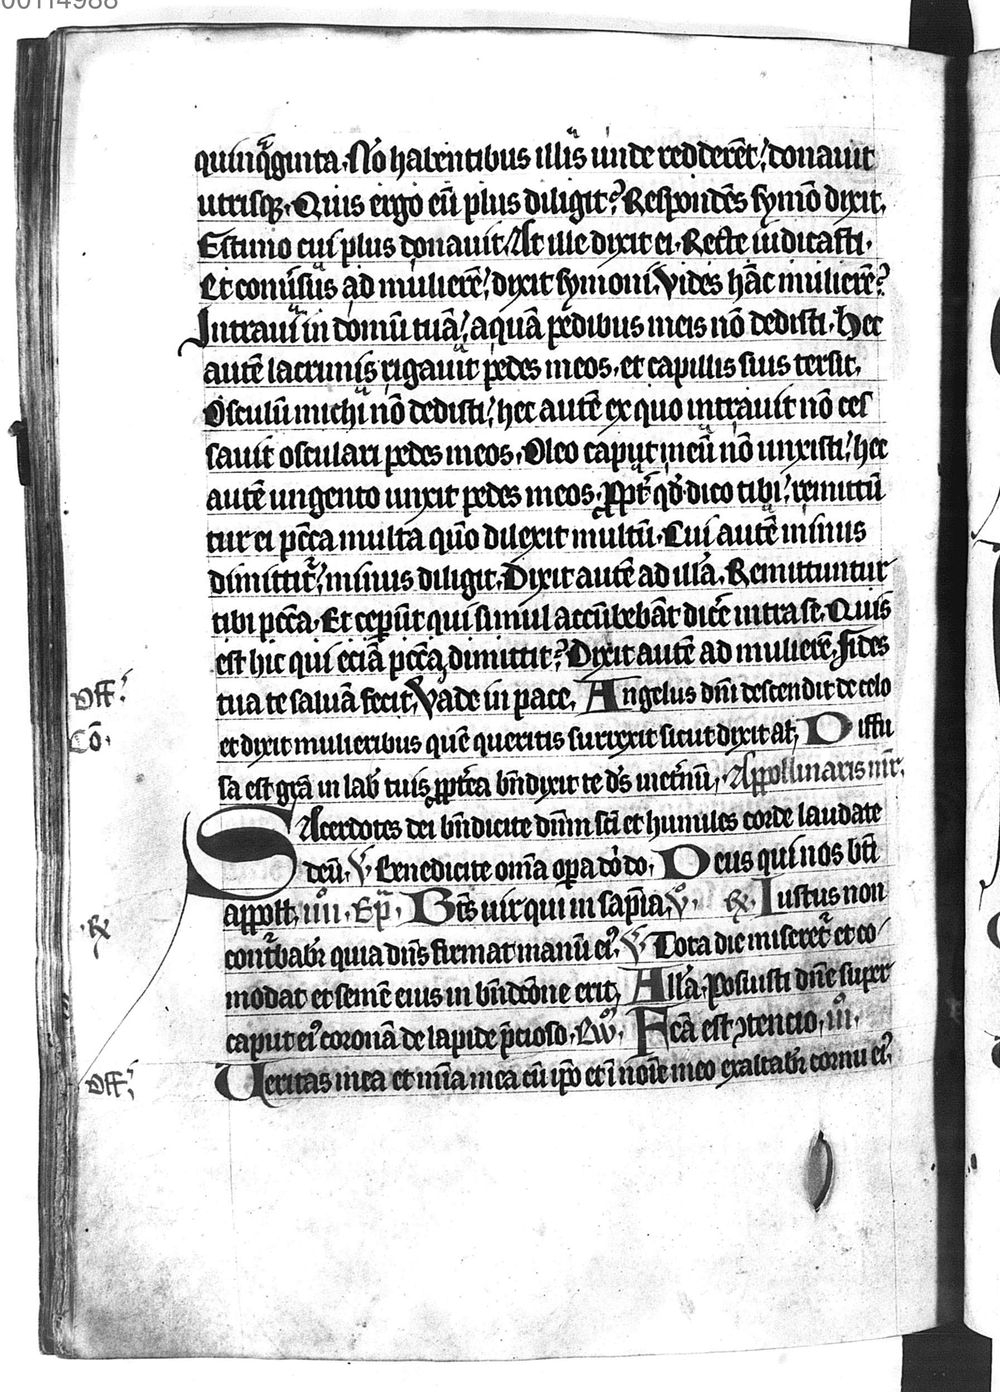 00114988
quinq̄ginta. Nō habentibus illis unde redderēt, donauit
utrisq̢. Quis ergo eū plus diligit? Respondēs symō dixit,
Estimo cui plus donauit. At ille dixit ei. Recte iudicasti.
Et conuersus ad mulierē, dixit symoni. Vides hāc mulierē?
Intraui in domū tuā, aquā pedibus meis nō dedisti. hec
autē lacrimis rigauit pedes meos, et capillis suis tersit,
Osculū michi nō dedisti, hec autē ex quo intrauit nō ces
sauit osculari pedes meos. Oleo caput meū nō unxisti, hec
autē ungento unxit pedes meos. ꝓpt̄ qd̄ dico tibi, remittū
tur ei pc̄ca multa qūo dilexit multū. Cui autē minus
dimittit᷑, minus diligit. Dixit autē ad illā. Remittuntur
tibi pc̄ca. Et ceper̄ūt qui simul accūbebāt dicē intra se. Quis
est hic qui eciā pc̄ca dimittit? Dixit autē ad mulierē. fides
tua te saluā fecit, Vade in pace, Angelus dn̄i descendit de celo
et dixit mulieribus quē queritis surrexit sicut dixit al̄, Diffu
sa est grā in lab̄ tuis ꝓptēa bn̄dixit te ds̄ inet̄nū, Appollinaris mr̄.
Sacerdotes dei bn̄dicite dn̄m sc̄i et humiles corde laudate
deū, V̄ Benedicite om̄a opa dō do, Deus qui nos bt̄i
appoll, Ep̄. Bt̄s uir qui in sapīa, V̄. R̄ Iustus non
cont᷑bab᷑ quia dn̄s firmat manū eiꝰ, V̄ Tota die miseret᷑ et co
modat et semē eius in bn̄dcōne erit, Allā. Posuisti dn̄e super
caput eiꝰ coronā de lapide p̄cioso. Ew̄. Fcā est ꝯtencio, iii.
Veritas mea et mīa mea cū ip̄o et ī noīe meo exaltab᷑ cornu eiꝰ,
Off̄.
Cō.
R̄
Off̄.